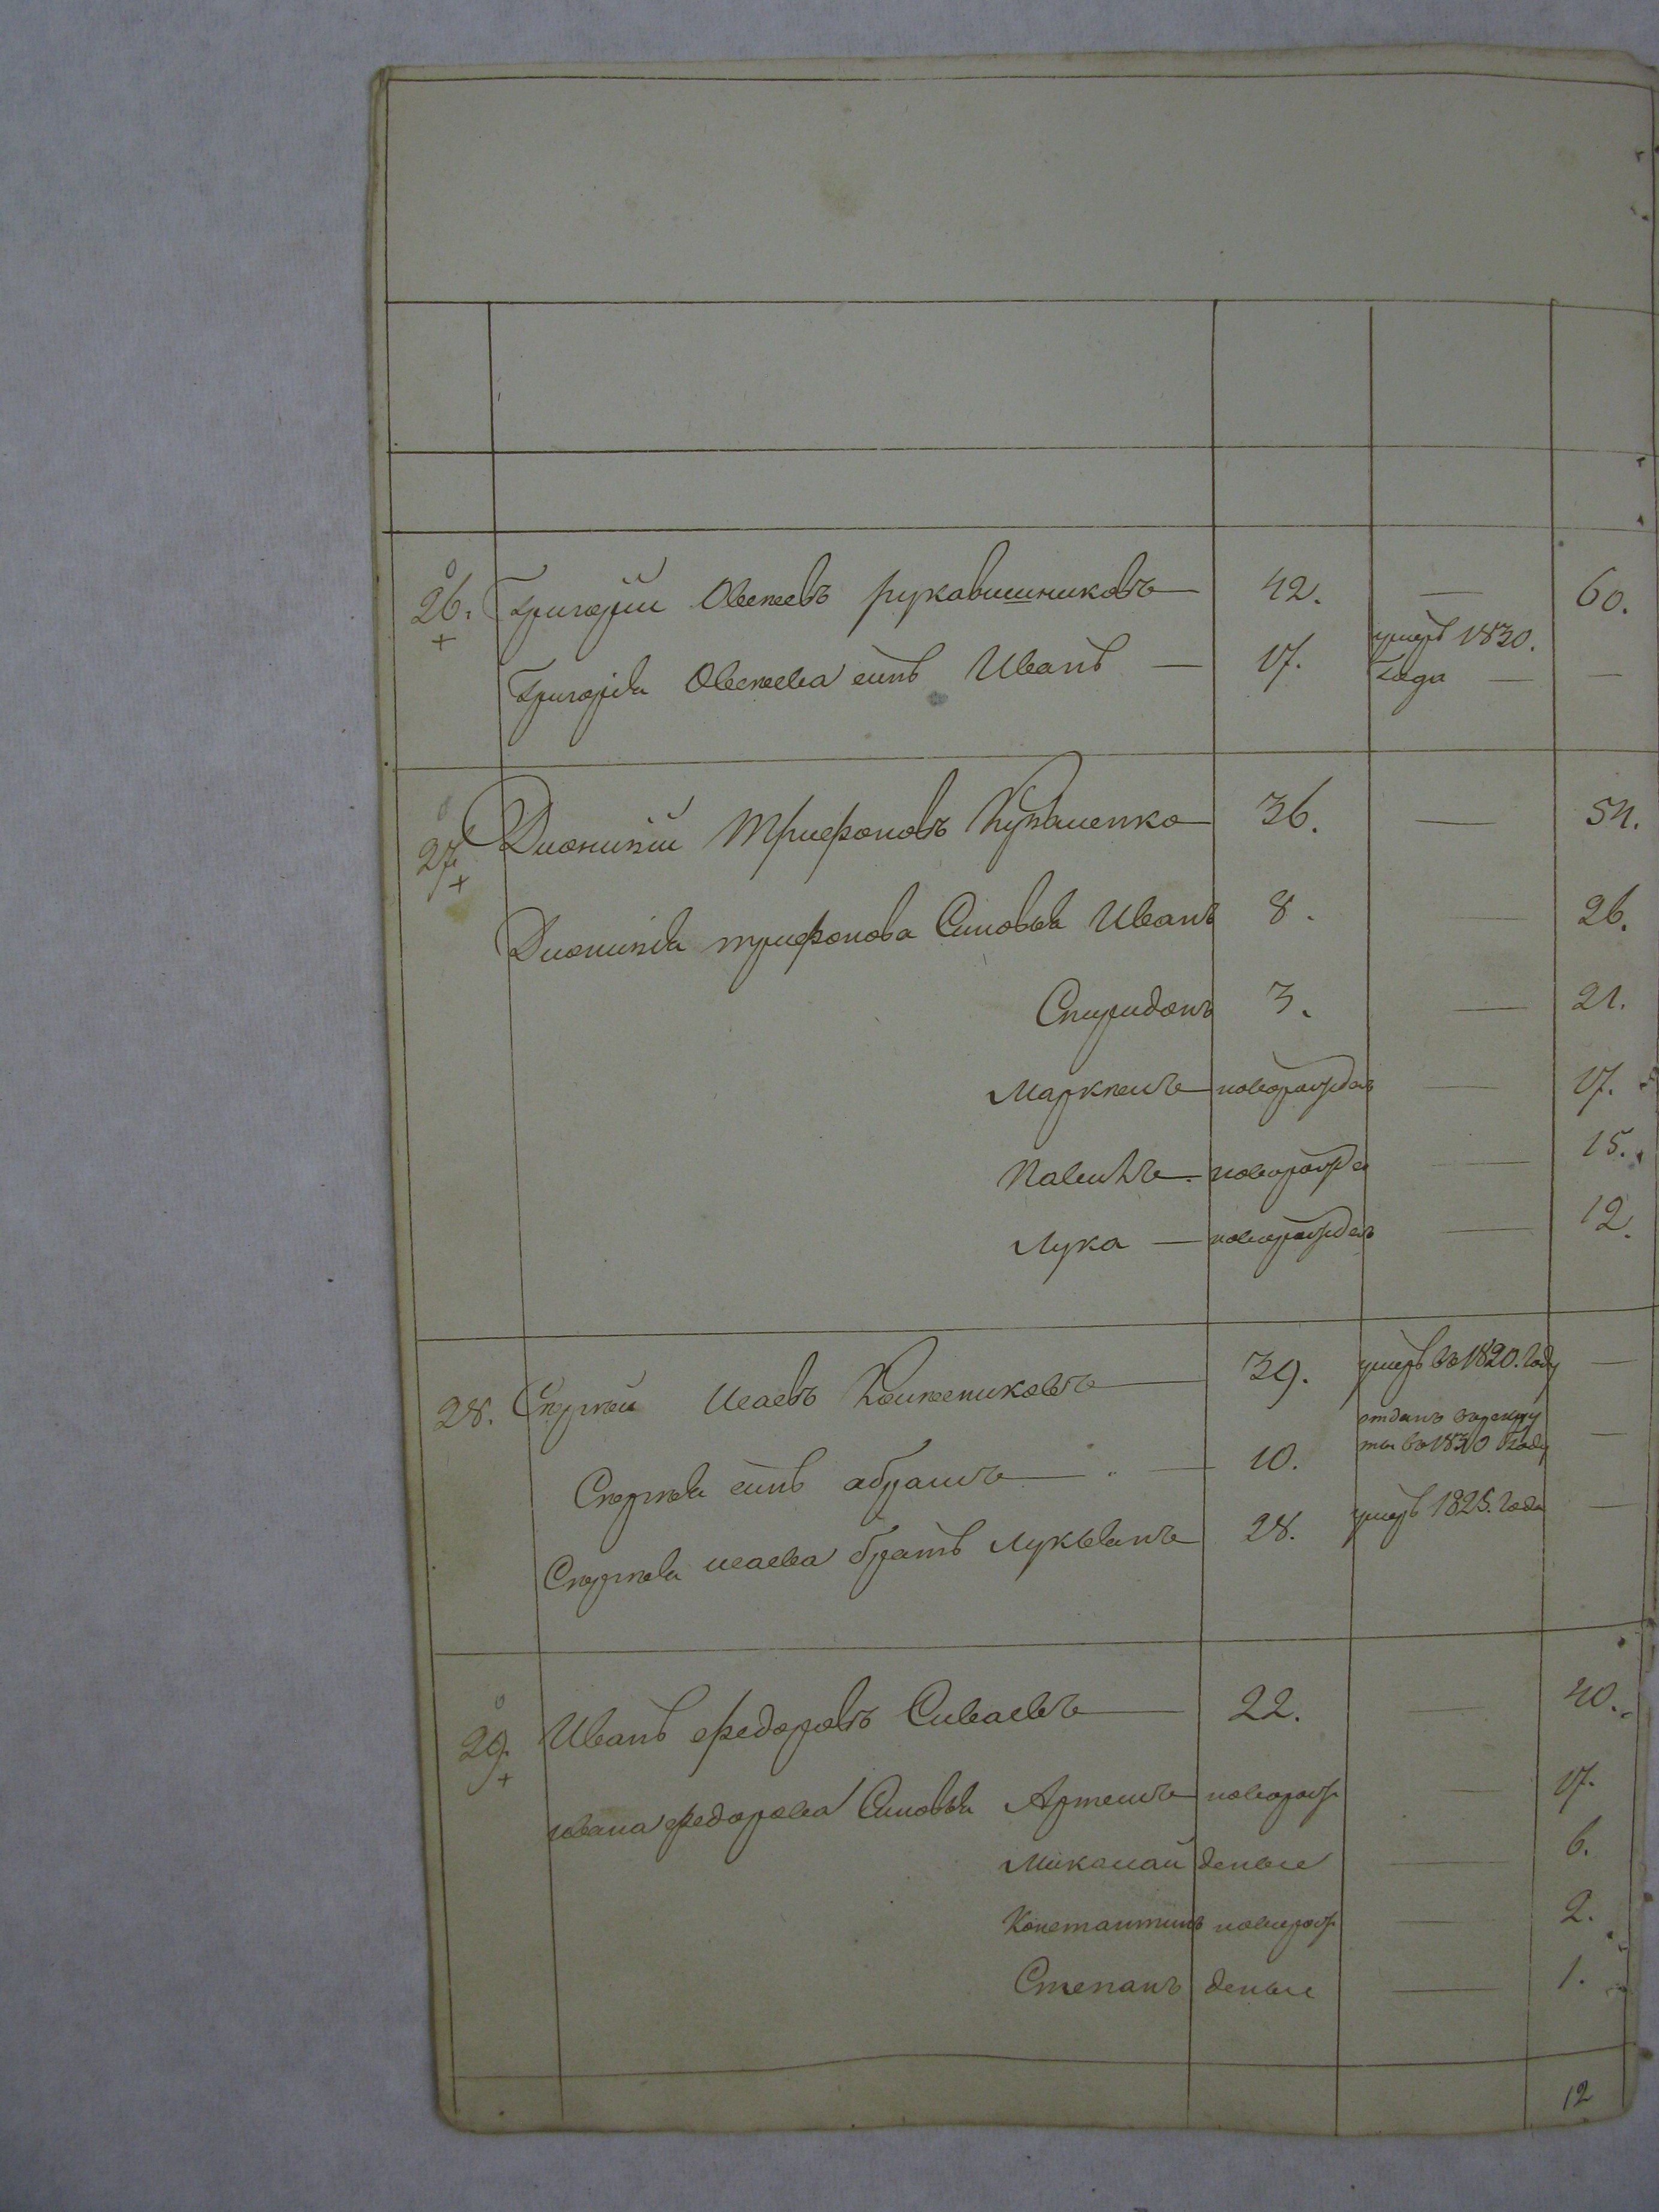 26. Григорій Овсеевъ рукавишниковъ — 42. — 60.
Григорія Овсеева сынъ Иванъ — 17. умеръ 1830. года — —
27. Дионисій Трифоновъ — 36. — 54.
Дионисія трифонова Сыновья Иванъ 8. — 26.
Спиридонъ 3. — 21.
новорожден — 17.
новорожде — 15.
Лука — новорожден — 12.
28. Сергей Исаевъ — 39. умеръ въ 1820. году —
Сергея сынъ абрамъ — 10. отданъ в рекру
ты въ 1830 году —
Сергея исаева братъ Лукьянъ 28. умеръ 1825. года —
29. Иванъ федоровъ Сиваевъ — 22. — 40.
ивана федорова Сыновья Артемъ новорож — 17.
Миколай деные — 6.
Константинъ новорож — 2.
Степанъ деные — 1.
12